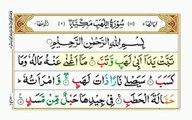 سُورَةُ اللَّهَبِ مَكِّيَّةٌ
بِسْمِ اللّٰهِ الرَّحْمٰنِ الرَّحِيْمِ
تَبَّتْ يَدَآ اَبِيْ لَهَبٍ وَّتَبَّ مَآ اَغْنٰى عَنْهُ مَالُهٗ وَمَا
كَسَبَ سَيَصْلٰى نَارًا ذَاتَ لَهَبٍ وَّامْرَاَتُهٗ
حَمَّالَةَ الْحَطَبِ فِيْ جِيْدِهَا حَبْلٌ مِّنْ مَّسَدٍ